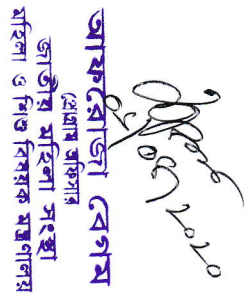 আফরোজা বেগম
প্রোগ্রাম অফিসার
জাতীয় মহিলা সংস্থা
মহিলা ও শিশু বিষয়ক মন্ত্রণালয়